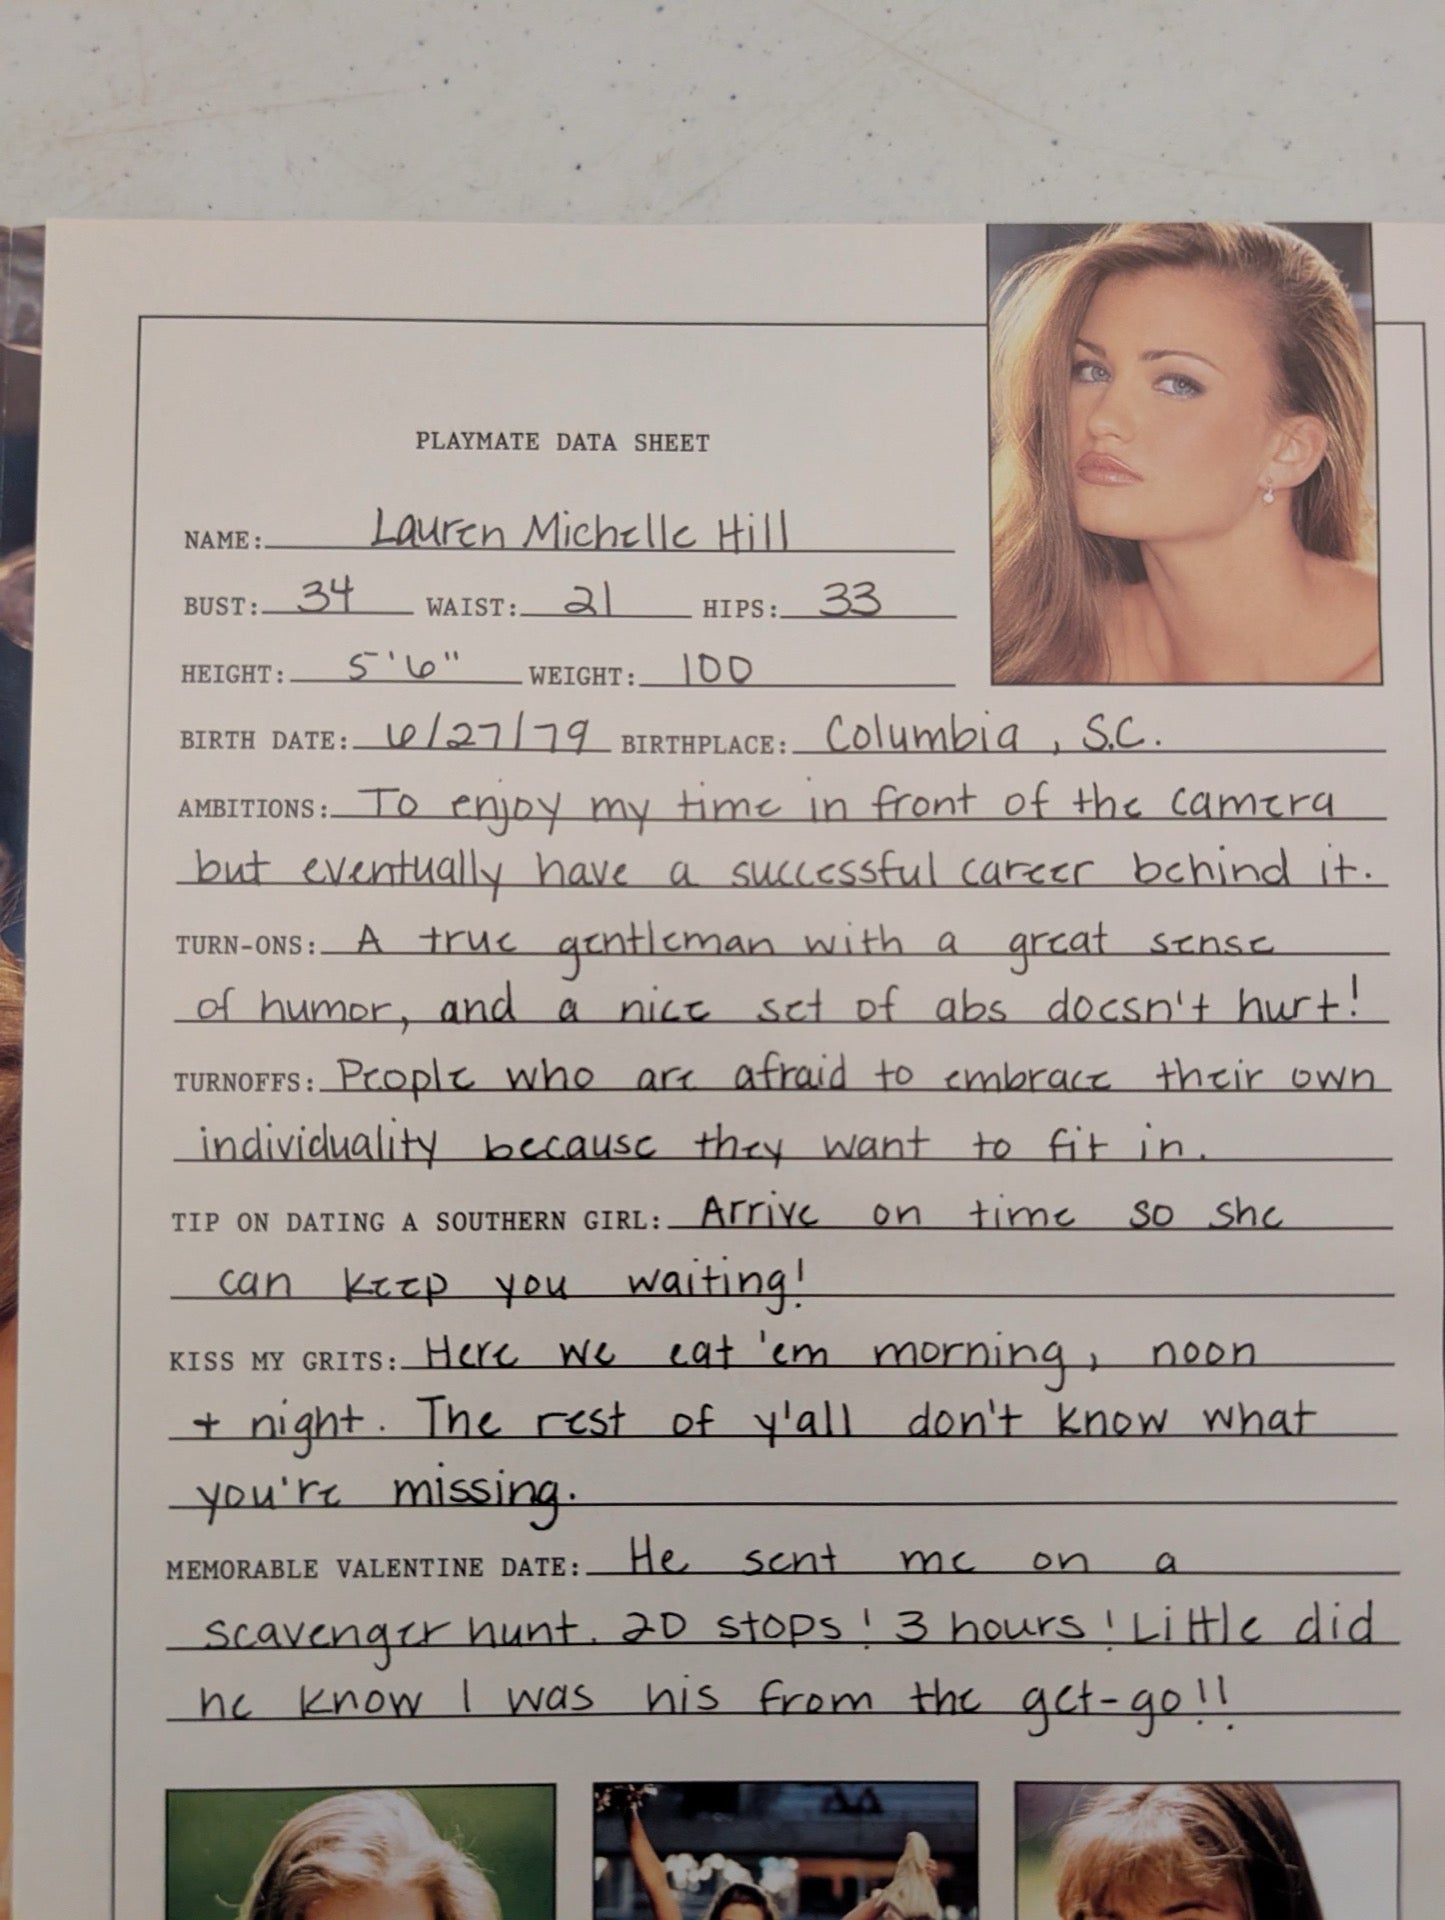 PLAYMATE DATA SHEET
NAME: Lauren Michelle Hill
BUST: 34 WAIST: 21 HIPS: 33
HEIGHT: 5'6" WEIGHT: 100
BIRTH DATE: 6/27/79 BIRTHPLACE: Columbia, S.C.
AMBITIONS: To enjoy my time in front of the camera
but eventually have a successful career behind it.
TURN-ONS: A true gentleman with a great sense
of humor, and a nice set of abs doesn't hurt!
TURNOFFS: People who are afraid to embrace their own
individuality because they want to fit in.
TIP ON DATING A SOUTHERN GIRL: Arrive on time so she
can keep you waiting!
KISS MY GRITS: Here we eat 'em morning, noon
+ night. The rest of y'all don't know what
you're missing.
MEMORABLE VALENTINE DATE: He sent me on a
scavenger hunt. 20 stops! 3 hours! Little did
he know I was his from the get-go!!